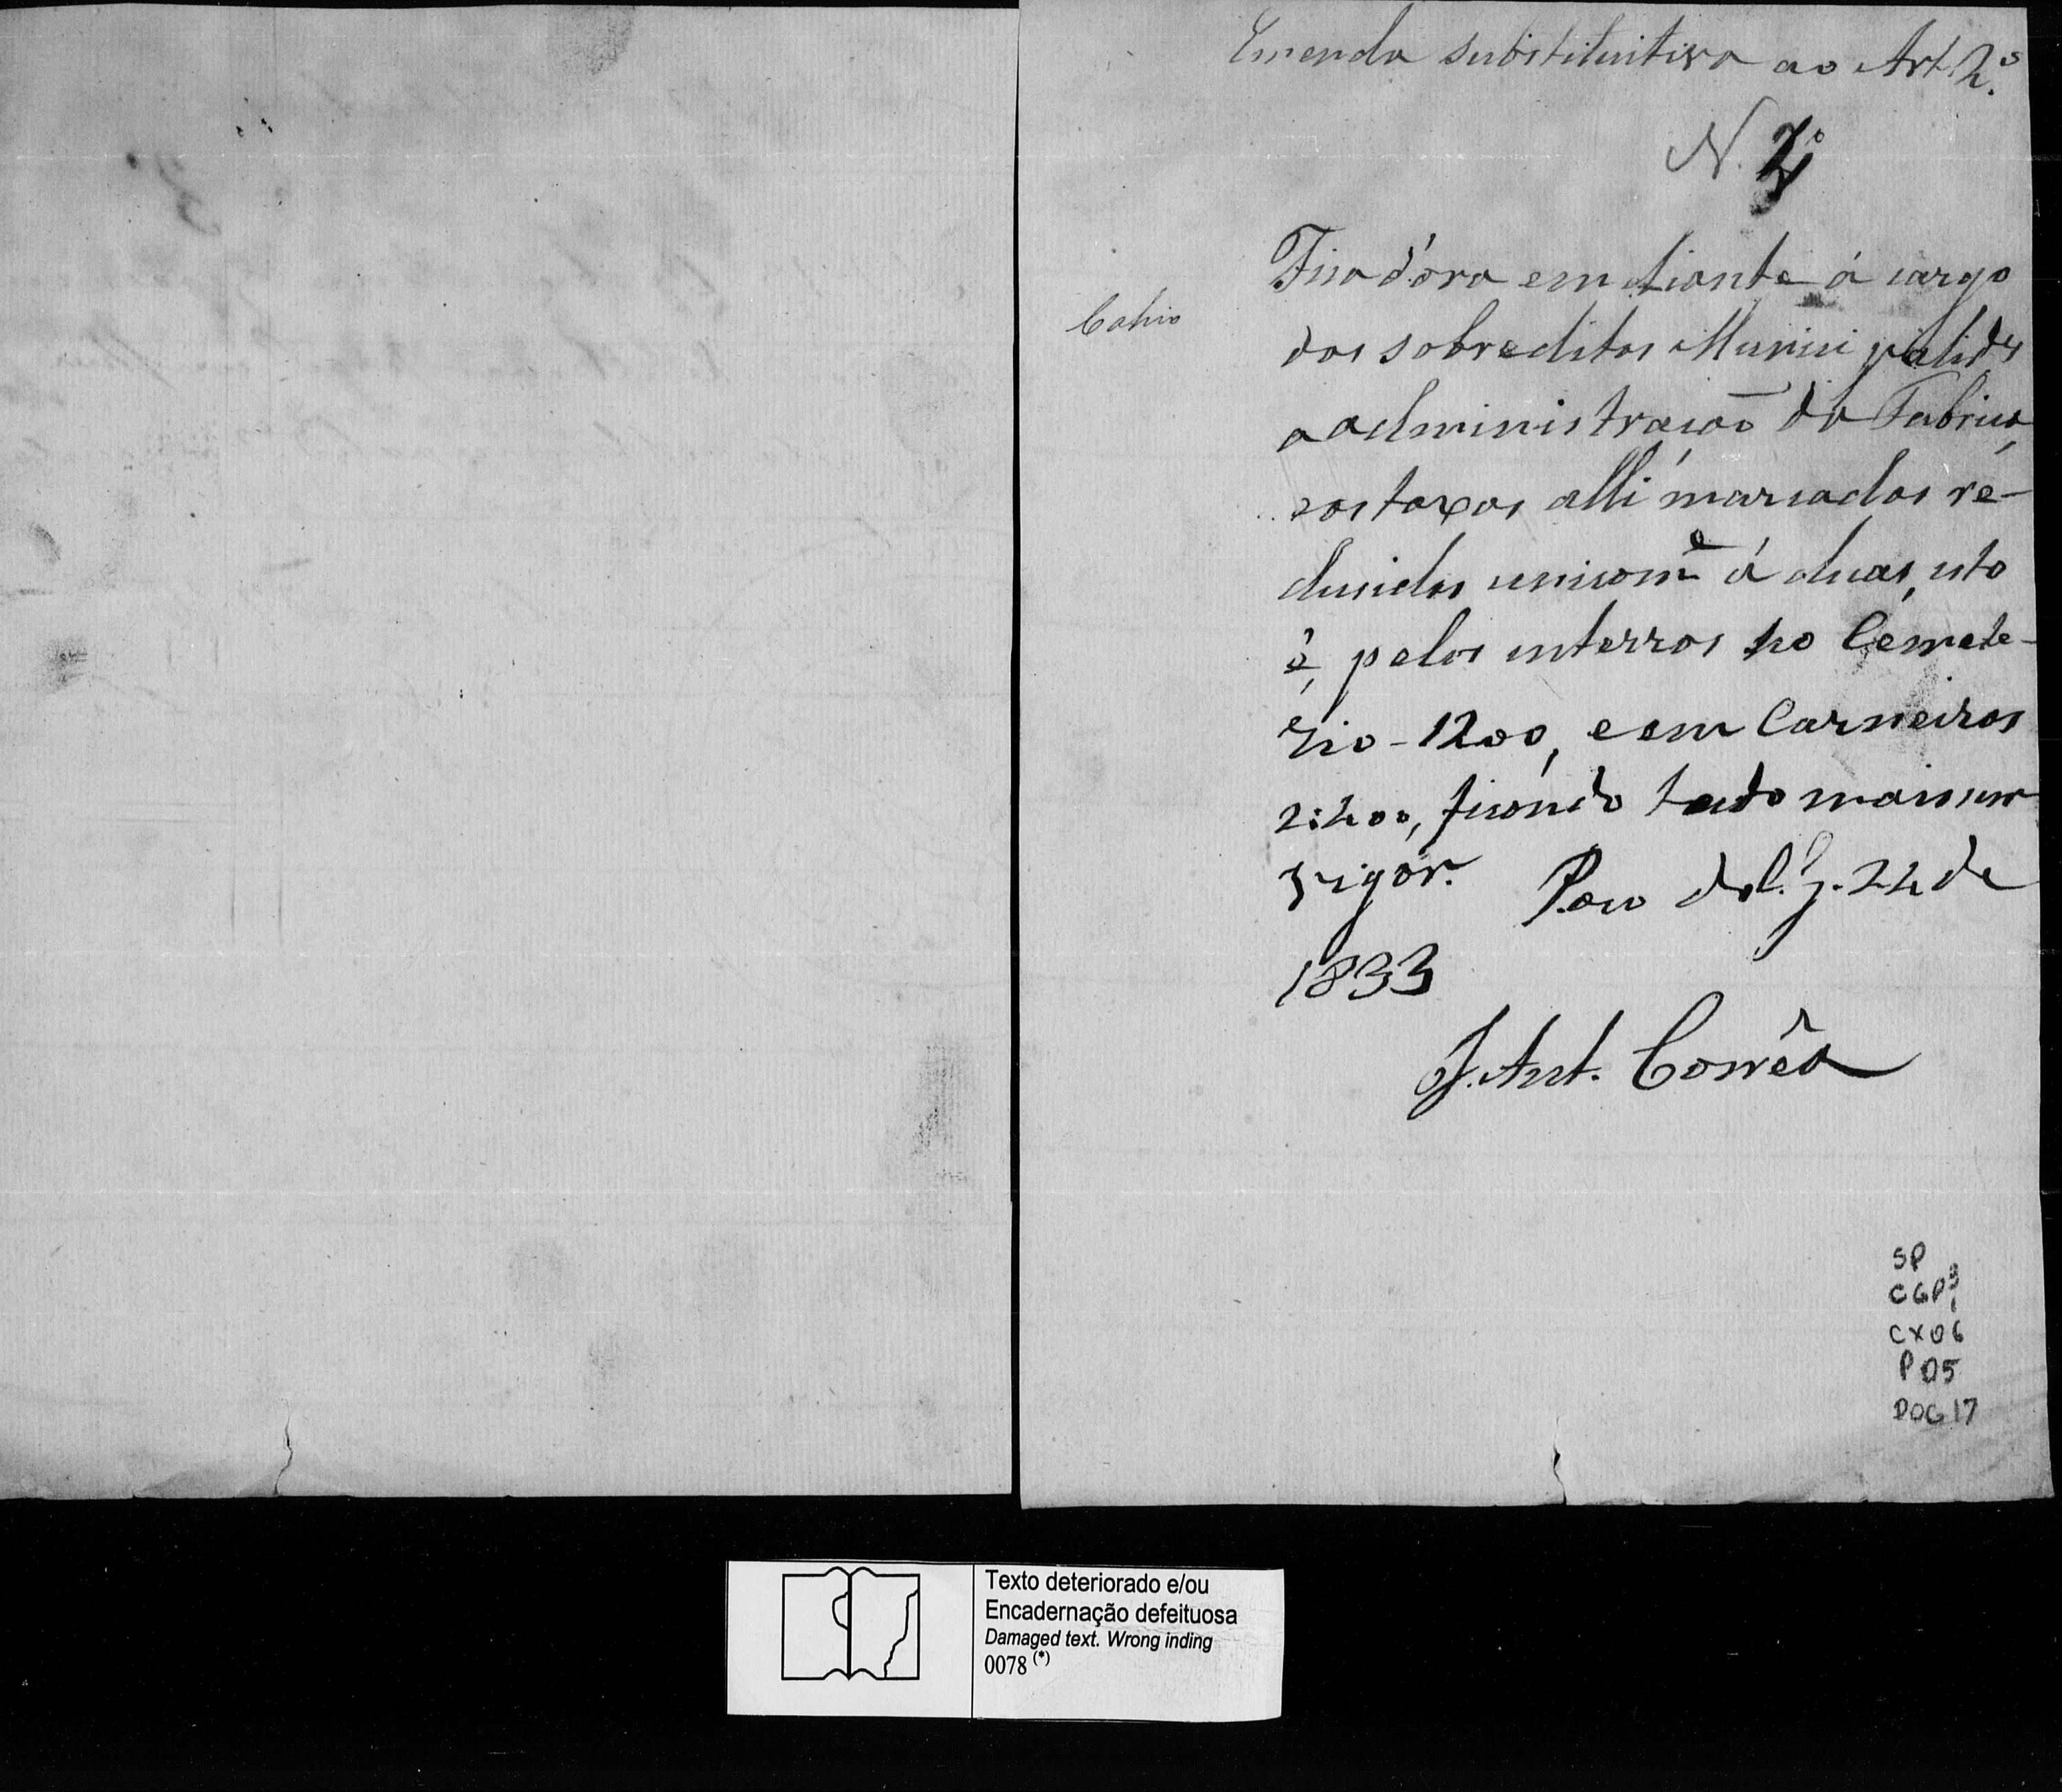 Emenda substitutiva ao Art. 2.º
N.
Fica d'óra em diante á cargo
Cahio
das sobreditas Municipalid.es
a administraçaõ da Fabrica,
e as taxas alli marcadas re-
dusidas unicam.e á duas, isto
é, pelos enterros no Cemete-
rio - 1200, e em Carneiros
2:400, ficando tudo mais em
vigor. Paço da 24 de
1833
J. Ant. Corrêa
SP
CGP
CX06
P05
DOC17
Texto deteriorado e/ou
Encadernação defeituosa
Damaged text. Wrong inding
0078 (*)